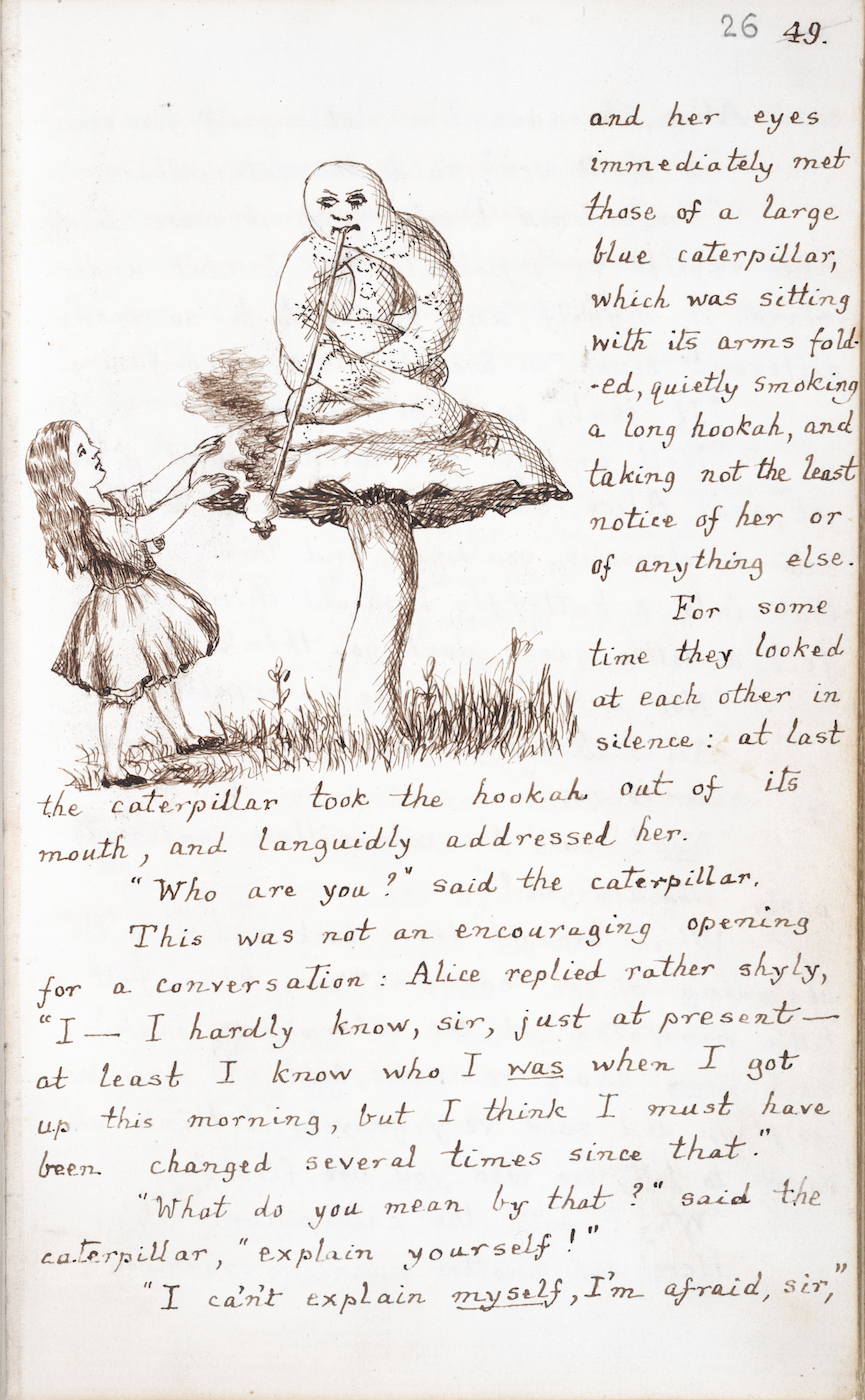 26 49.
and her eyes
immediately met
those of a large
blue caterpillar,
which was sitting
with its arms fold-
-ed, quietly smoking
a long hookah, and
taking not the least
notice of her or
of anything else.
For some
time they looked
at each other in
silence : at last
the caterpillar took the hookah out of its
mouth, and languidly addressed her.
"Who are you?" said the caterpillar.
This was not an encouraging opening
for a conversation : Alice replied rather shyly,
"I — I hardly know, sir, just at present —
at least I know who I was when I got
up this morning, but I think I must have
been changed several times since that."
"What do you mean by that?" said the
caterpillar, "explain yourself!"
"I ca'n't explain myself, I'm afraid, sir,"